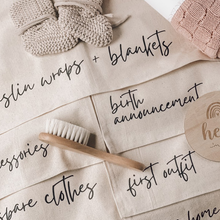 slin wraps + blankets
birth
announcement
essories
first outfit
spare clothes
home
he